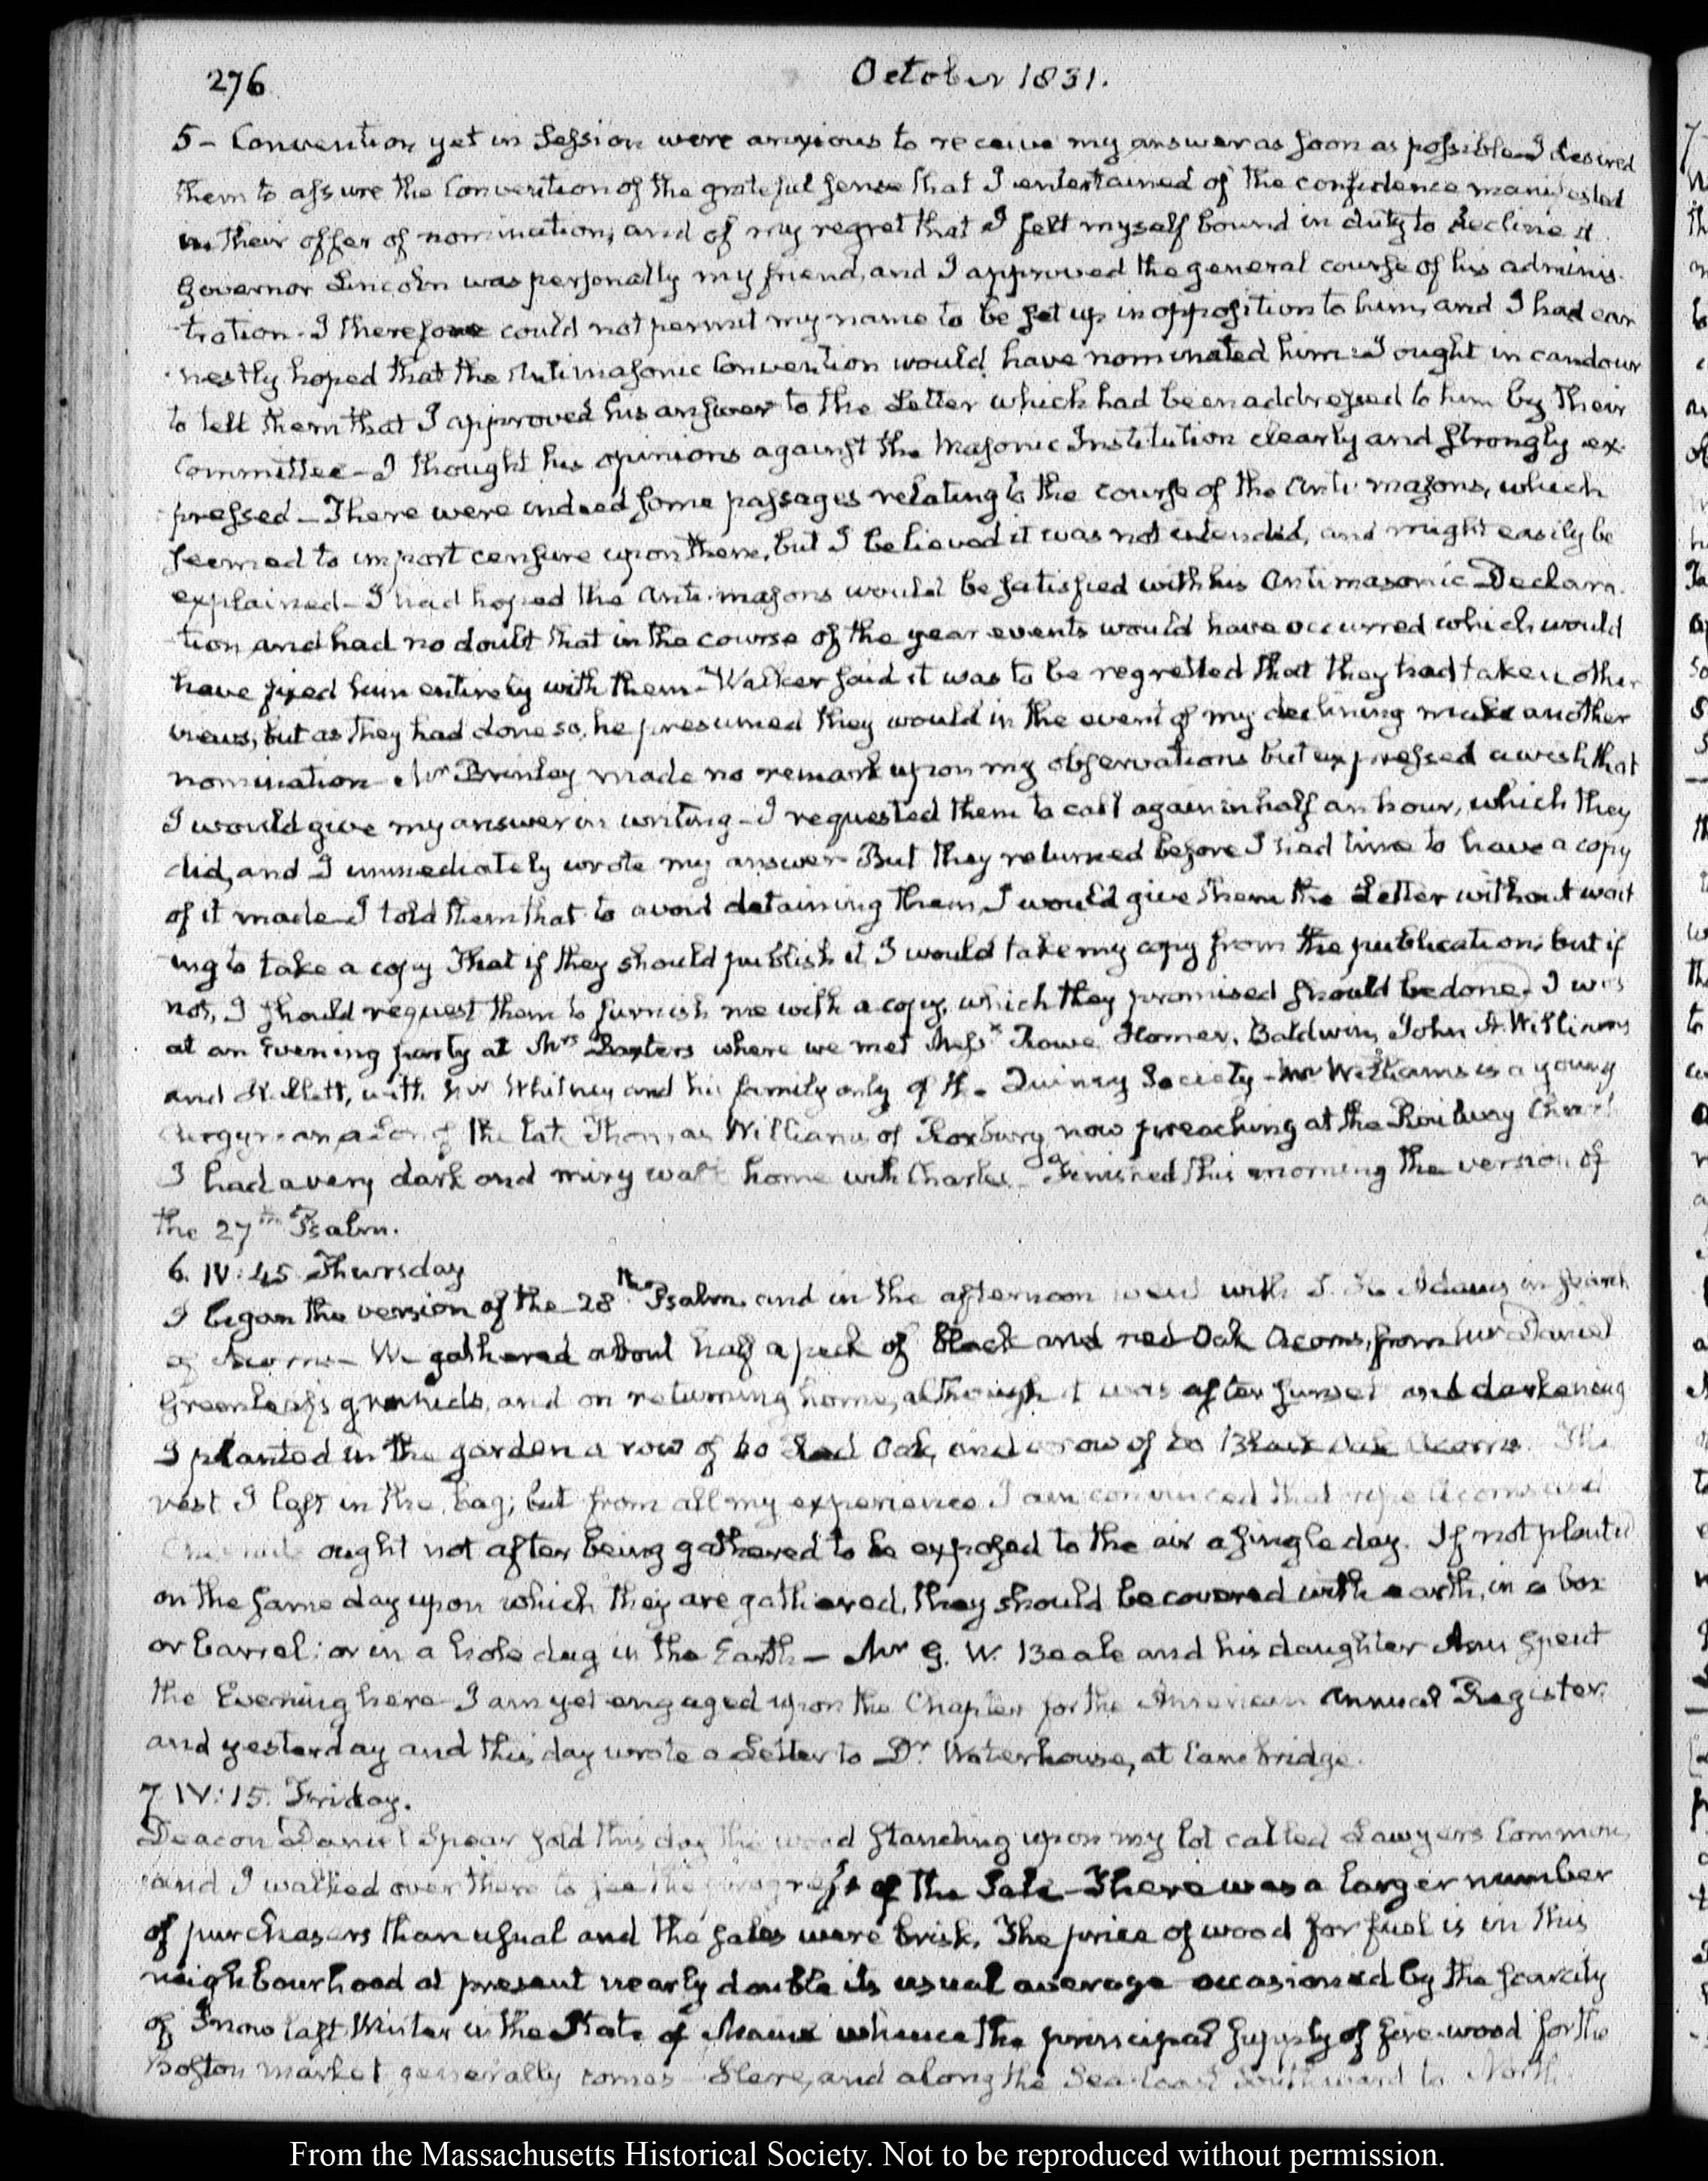 276
October 1831.
5 - Convention yet in Session were anxious to receive my answer as soon as possible - I desired
them to assure the Convention of the grateful sense that I entertained of the confidence manifested
in their offer of nomination, and of my regret that I felt myself bound in duty to decline it.
Governor Lincoln was personally my friend, and I approved the general course of his adminis-
-tration - I therefore could not permit my name to be set up in opposition to him, and I had ear
-nestly hoped that the Antimasonic Convention would have nominated him - I ought in candour
to tell them that I approved his answer to the Letter which had been addressed to him by their
Committee - I thought his opinions against the Masonic Institution clearly and strongly ex-
-pressed - There were indeed some passages relating to the course of the Anti-masons, which
seemed to import censure upon them, but I believed it was not intended, and might easily be
explained - I had hoped the Anti-masons would be satisfied with his Antimasonic Declara-
-tion and had no doubt that in the course of the year events would have occurred which would
have fixed him entirely with them - Walker said it was to be regretted that they had taken other
views, but as they had done so, he presumed they would in the event of my declining make another
nomination - Mr Brinley made no remark upon my observations but expressed a wish that
I would give my answer in writing - I requested them to call again in half an hour, which they
did, and I immediately wrote my answer - But they returned before I had time to have a copy
of it made - I told them that to avoid detaining them, I would give them the Letter without wait
ing to take a copy That if they should publish it I would take my copy from the publication; but if
not, I should request them to furnish me with a copy, which they promised should be done - I was
at an Evening party at Mrs Baxters where we met Messrs Rowe Homer, Baldwin, John A. Williams
and Hallett, with Mr Whitney and his family only of the Quincy Society - Mr Williams is a young
Clergyman, a Son of the late Thomas Williams of Roxbury, now preaching at the Roxbury Church
I had a very dark and miry walk home with Charles - Finished this morning the version of
the 27th Psalm.
6. IV:45 Thursday
I began the version of the 28th Psalm and in the afternoon went with Adams in search
of Acorns - We gathered about half a peck of Black and red Oak Acorns, from Mr Daniel
Greenleaf's grounds, and on returning home, although it was after sunset and darkening
I planted in the garden a row of Red Oak, and a row of Black Oak Acorns. The
rest I left in the bag; but from all my experience I am convinced that ripe Acorns and
Chesnuts ought not after being gathered to be exposed to the air a single day. If not planted
on the same day upon which they are gathered, they should be covered with earth, in a box
or barrel; or in a hole dug in the Earth - Mr G. W. Beale and his daughter Ann spent
the Evening here - I am yet engaged upon the Chapter for the American Annual Register,
and yesterday and this day wrote a Letter to Dr Waterhouse, at Cambridge.
7. IV:15. Friday.
Deacon Daniel Spear sold this day the wood standing upon my lot called Lawyers Common,
and I walked over there to see the progress of the Sale - There was a larger number
of purchasers than usual and the sales were brisk. The price of wood for fuel is in this
neighbourhood at present nearly double its usual average occasioned by the scarcity
of Snow last Winter in the State of Maine whence the principal supply of fire-wood for the
Boston market generally comes - Here, and along the Sea-Coast Southward to North
From the Massachusetts Historical Society. Not to be reproduced without permission.